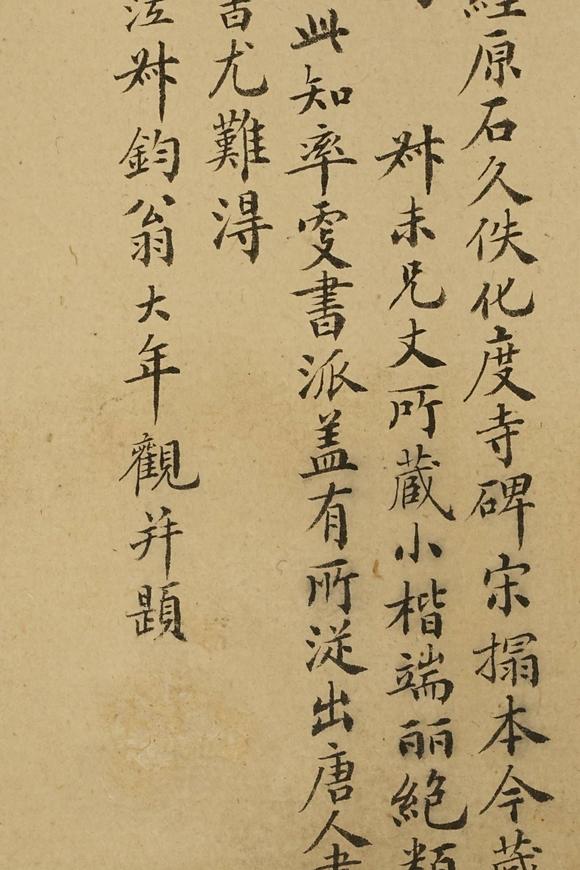 經原石久佚化度寺碑宋搨本今藏
尗未兄丈所蔵小楷端丽絶類
此知率更書派盖有所從出唐人書
尤難得
尗鈞翁大年觀并題